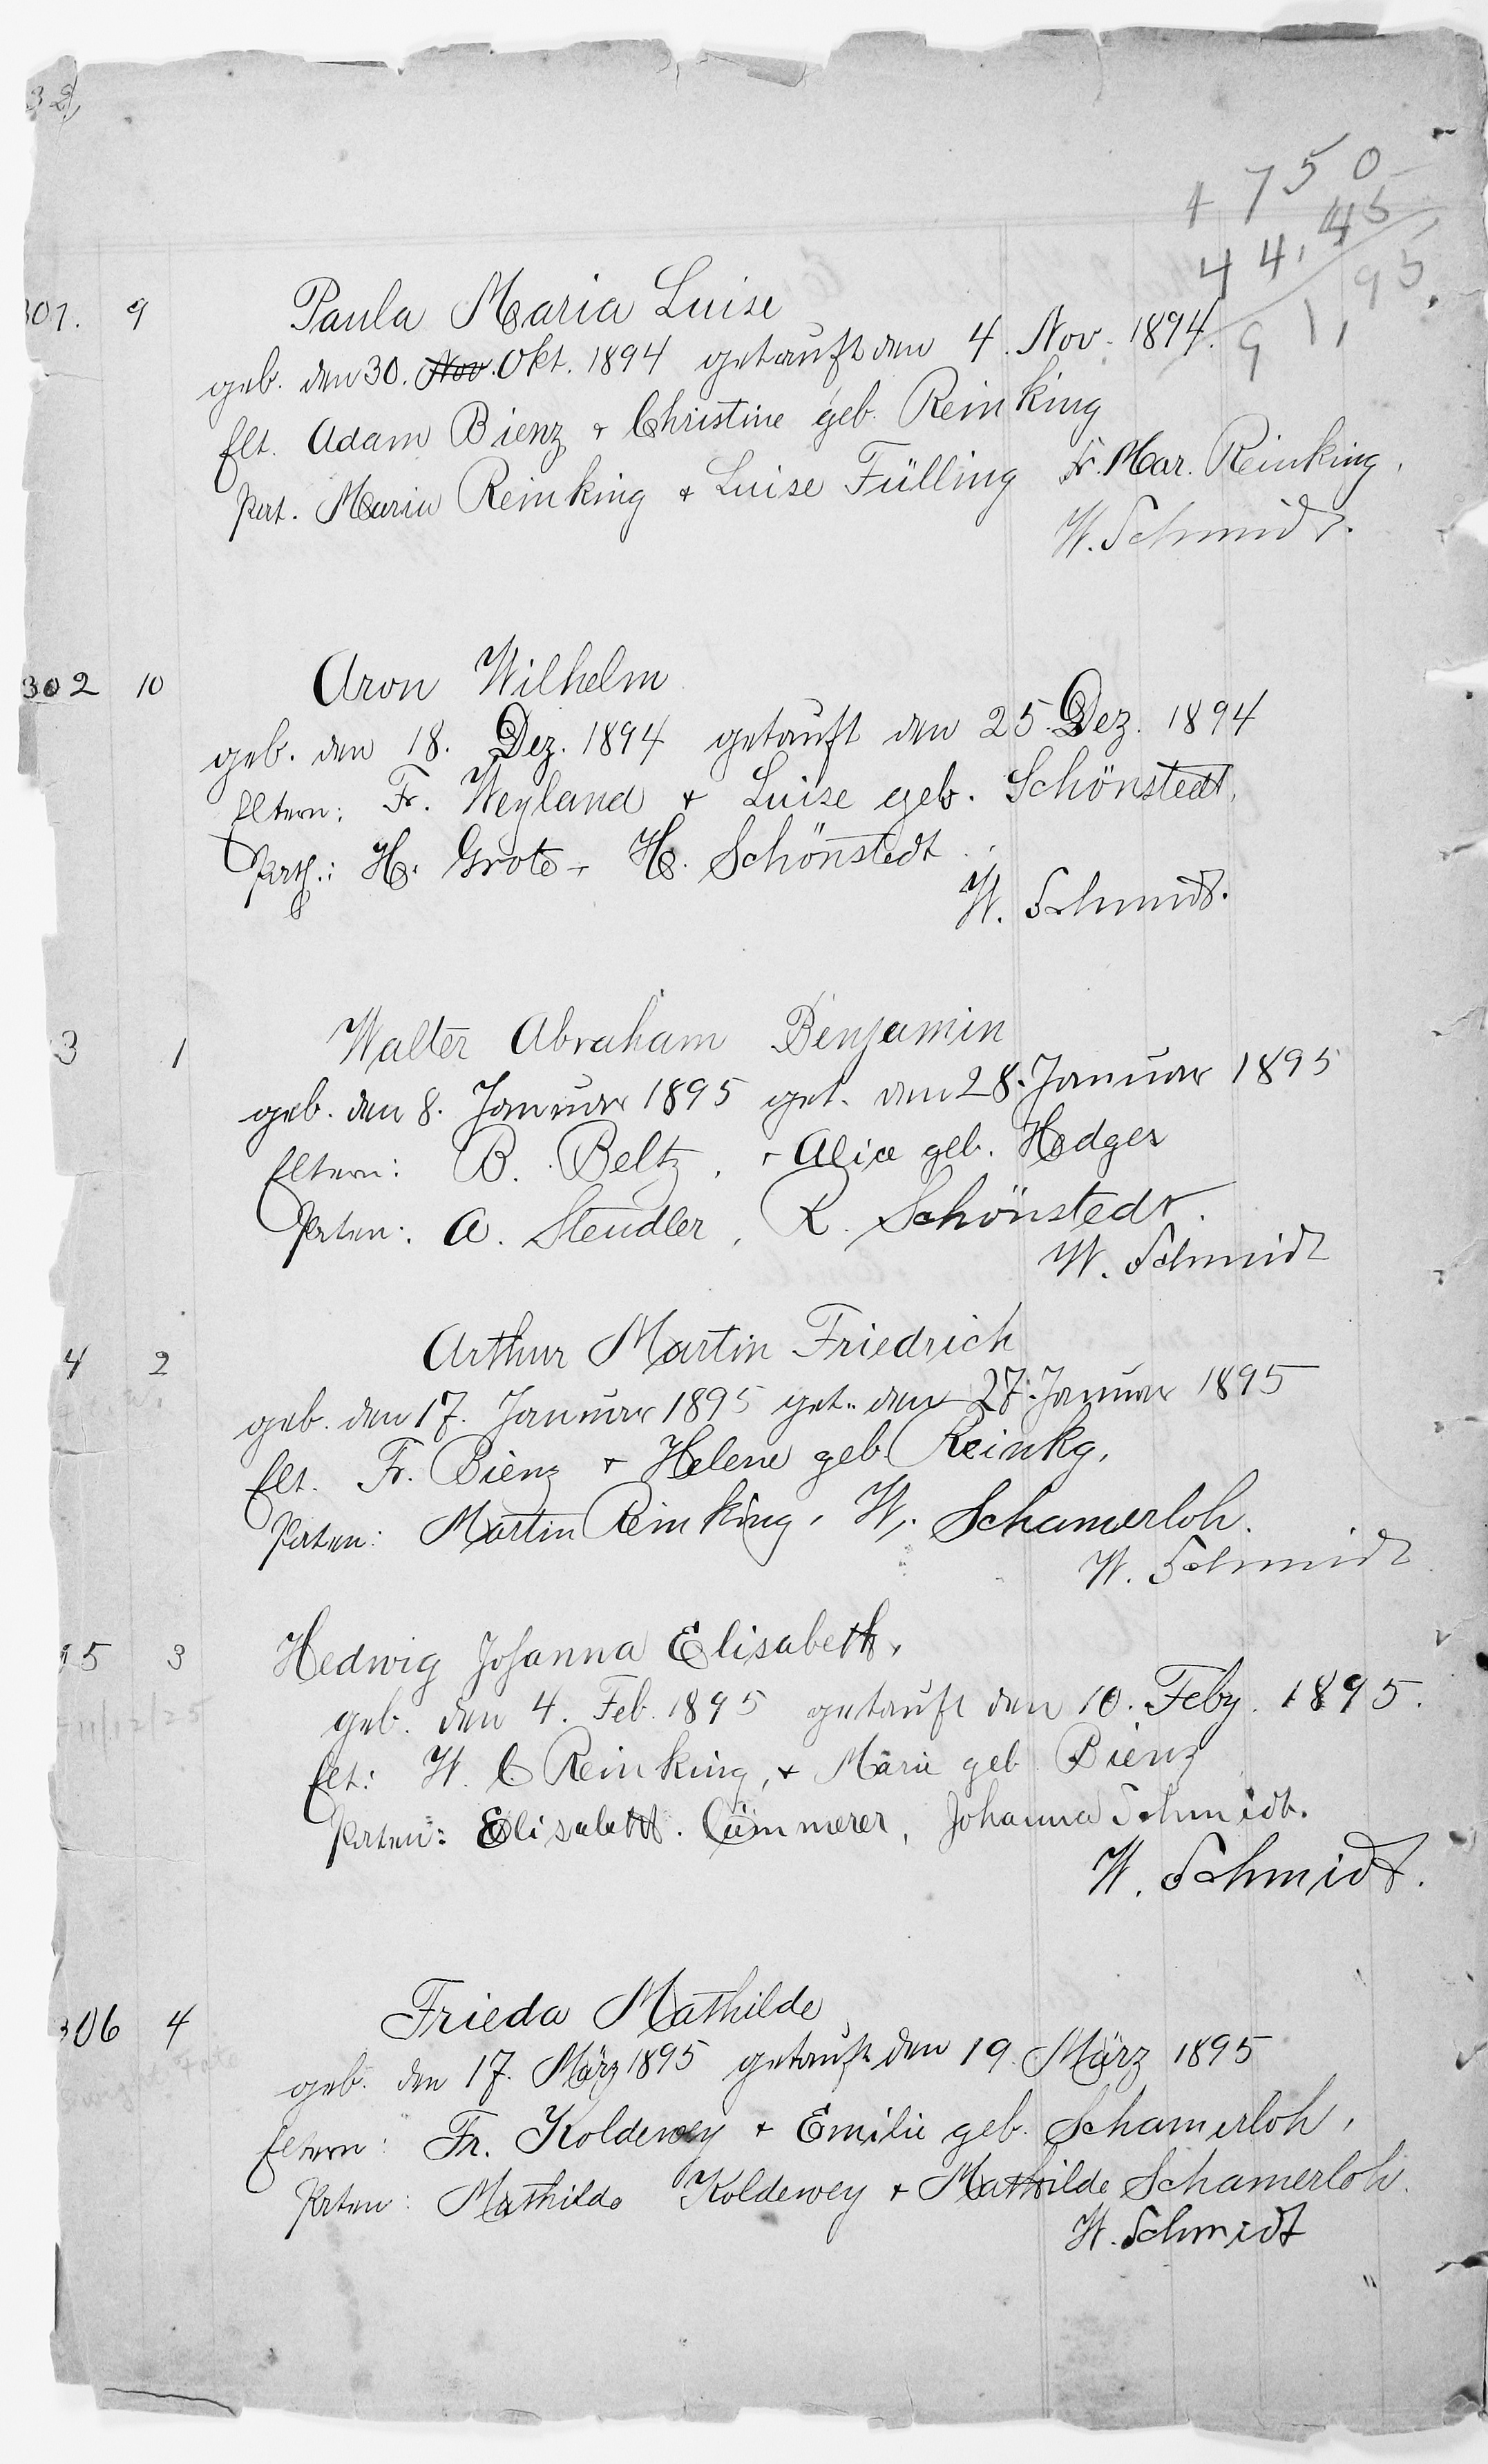 32,
1750
45
44,
91,95.
301. 9 Paula Maria Luise
geb. den 30. Nov. Okt. 1894 getauft den 4. Nov. 1894.
Elt. Adam Bienz + Christine geb. Reinking
Pat. Maria Reinking + Luise Fülling Fr. Mar. Reinking.
W. Schmidt.
302 10 Aron Wilhelm
geb. den 18. Dez. 1894 getauft den 25. Dez. 1894
Eltern: Fr. Weyland + Luise geb. Schönstedt.
Path.: H. Grote, H. Schönstedt
W. Schmidt.
3 1 Walter Abraham Benjamin
geb. den 8. Januar 1895 get. den 28. Januar 1895
Eltern: B. Beltz, + Alice geb. Hedges
Paten: A. Steudler, R. Schönstedt.
W. Schmidt
4 2 Arthur Martin Friedrich
geb. den 17. Januar 1895 get. den 27. Januar 1895
Elt. Fr. Bienz + Helene geb. Reinkg.
Paten: Martin Reinking, W. Schamerloh.
W. Schmidt
5 3 Hedwig Johanna Elisabeth,
geb. den 4. Feb. 1895 getauft den 10. Feby. 1895.
11/12/25
Elt: W. C. Reinking, + Marie geb. Bienz
Paten: Elisabeth. Cämmerer, Johanna Schmidt.
W. Schmidt.
306 4 Frieda Mathilde
geb. den 17. März 1895 getauft den 19. März 1895
Eltern: Fr. Koldewey + Emilie geb. Schamerloh,
Paten: Mathilde Koldewey + Mathilde Schamerloh.
W. Schmidt